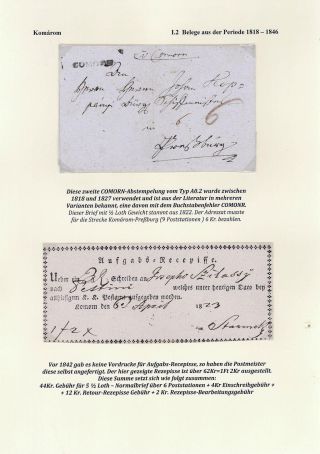 Komárom
I.2 Belege aus der Periode 1818 – 1846
COMORN
Comorn
Preßburg
6
Diese zweite COMORN-Abstempelung vom Typ A0.2 wurde zwischen
1818 und 1827 verwendet und ist aus der Literatur in mehreren
Varianten bekannt, eine davon mit dem Buchstabenfehler COMONR.
Dieser Brief mit ½ Loth Gewicht stammt aus 1822. Der Adressat musste
für die Strecke Komorn-Preßburg (9 Poststationen) 6 Kr. bezahlen.
Aufgabs-Recepisse.
Ueber ein Schreiben an Josephs Szilassy
nach welches unter heutigen Dato bey
allhiesigen K. K. Postamt aufgegeben worden.
Komorn den April 1823
1 f 2 x
Vor 1842 gab es keine Vordrucke für Aufgabs-Rezepisse, so haben die Postmeister
diese selbst angefertigt. Der hier gezeigte Rezepisse ist über 62Kr=1Ft 2Kr ausgestellt.
Diese Summe setzt sich wie folgt zusammen:
44Kr. Gebühr für 5 ½ Loth – Normalbrief über 6 Poststationen + 4Kr Einschreibgebühr +
+ 12 Kr. Retour-Rezepisse Gebühr + 2 Kr. Rezepisse-Bearbeitungsgebühr